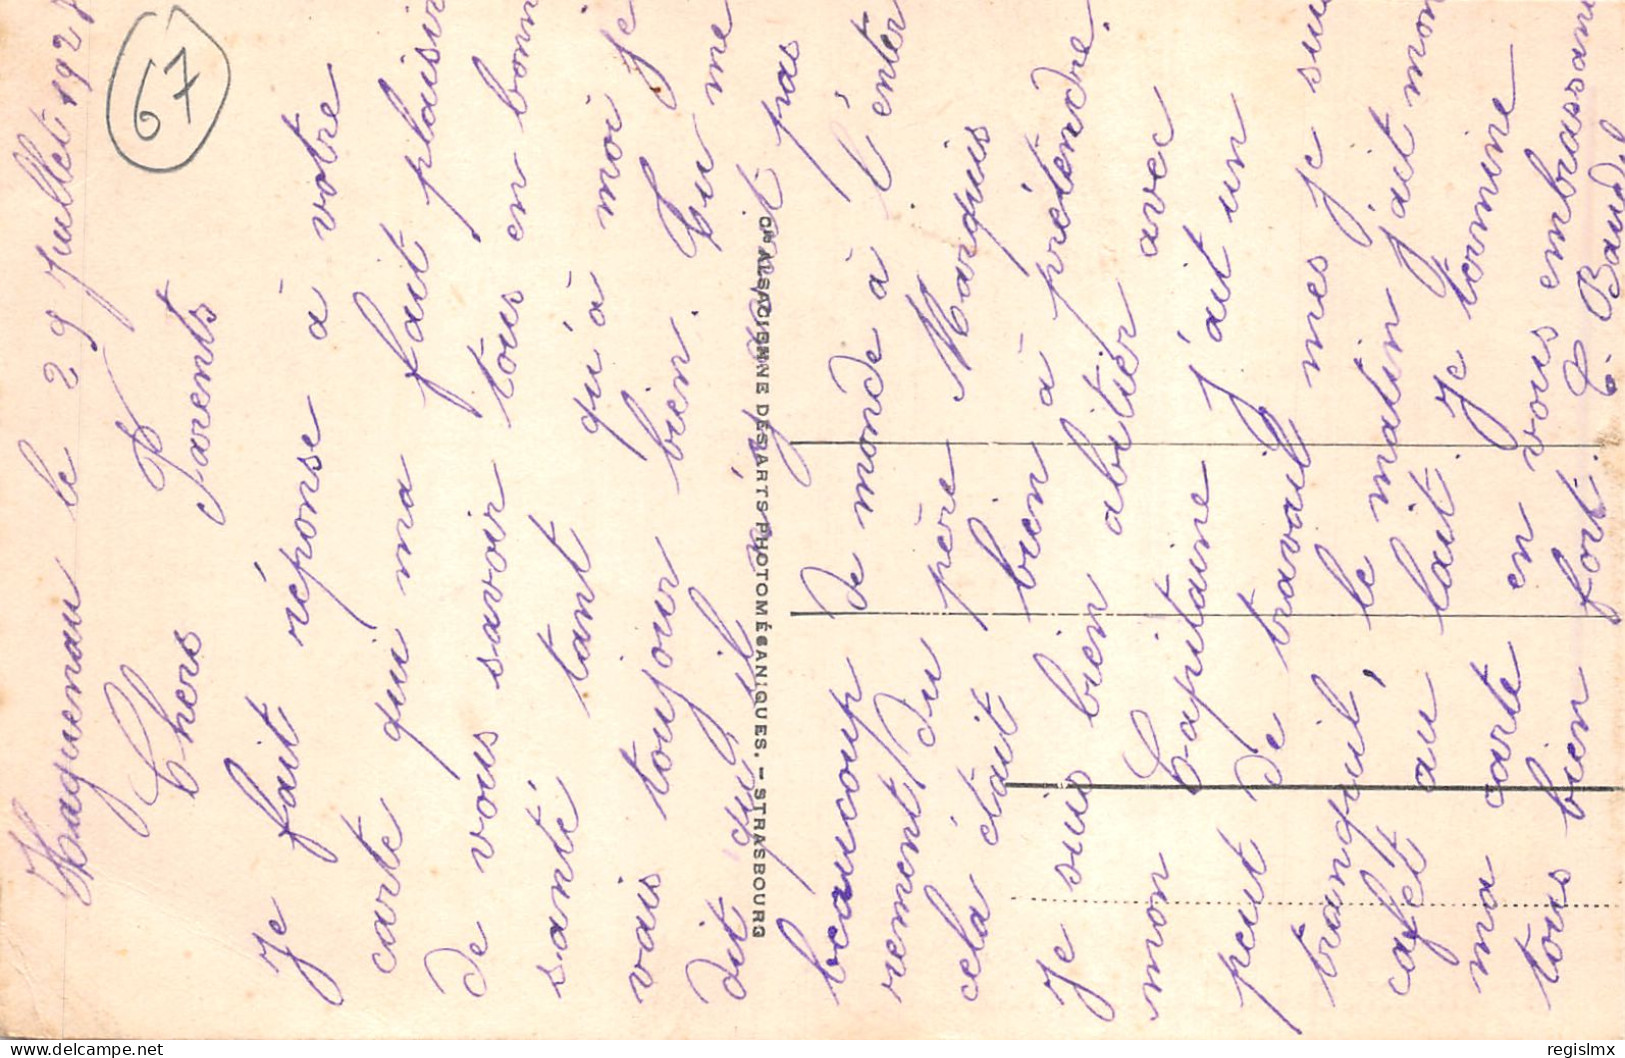 Haguenau le 29 Juillet 192
67
Chers Parents
Je fait réponse à votre
carte qui ma fait plaisir
de vous savoir tous en bonne
santé tant qu'à moi je
vais toujour bien. Tu me
dit qu'il pas
beaucoup de monde à l'enter
rement du père Marquis
cela était bien à prétendre.
Je suis bien abitier avec
mon Capitaine j'ait un
peut de travail mes je suis
tranquil, le matin j'ait mon
cafet au lait. Je termine
ma carte en vous embrassant
tous bien fort.
Cie ALSACIENNE DES ARTS PHOTOMÉCANIQUES. – STRASBOURG
regislmx